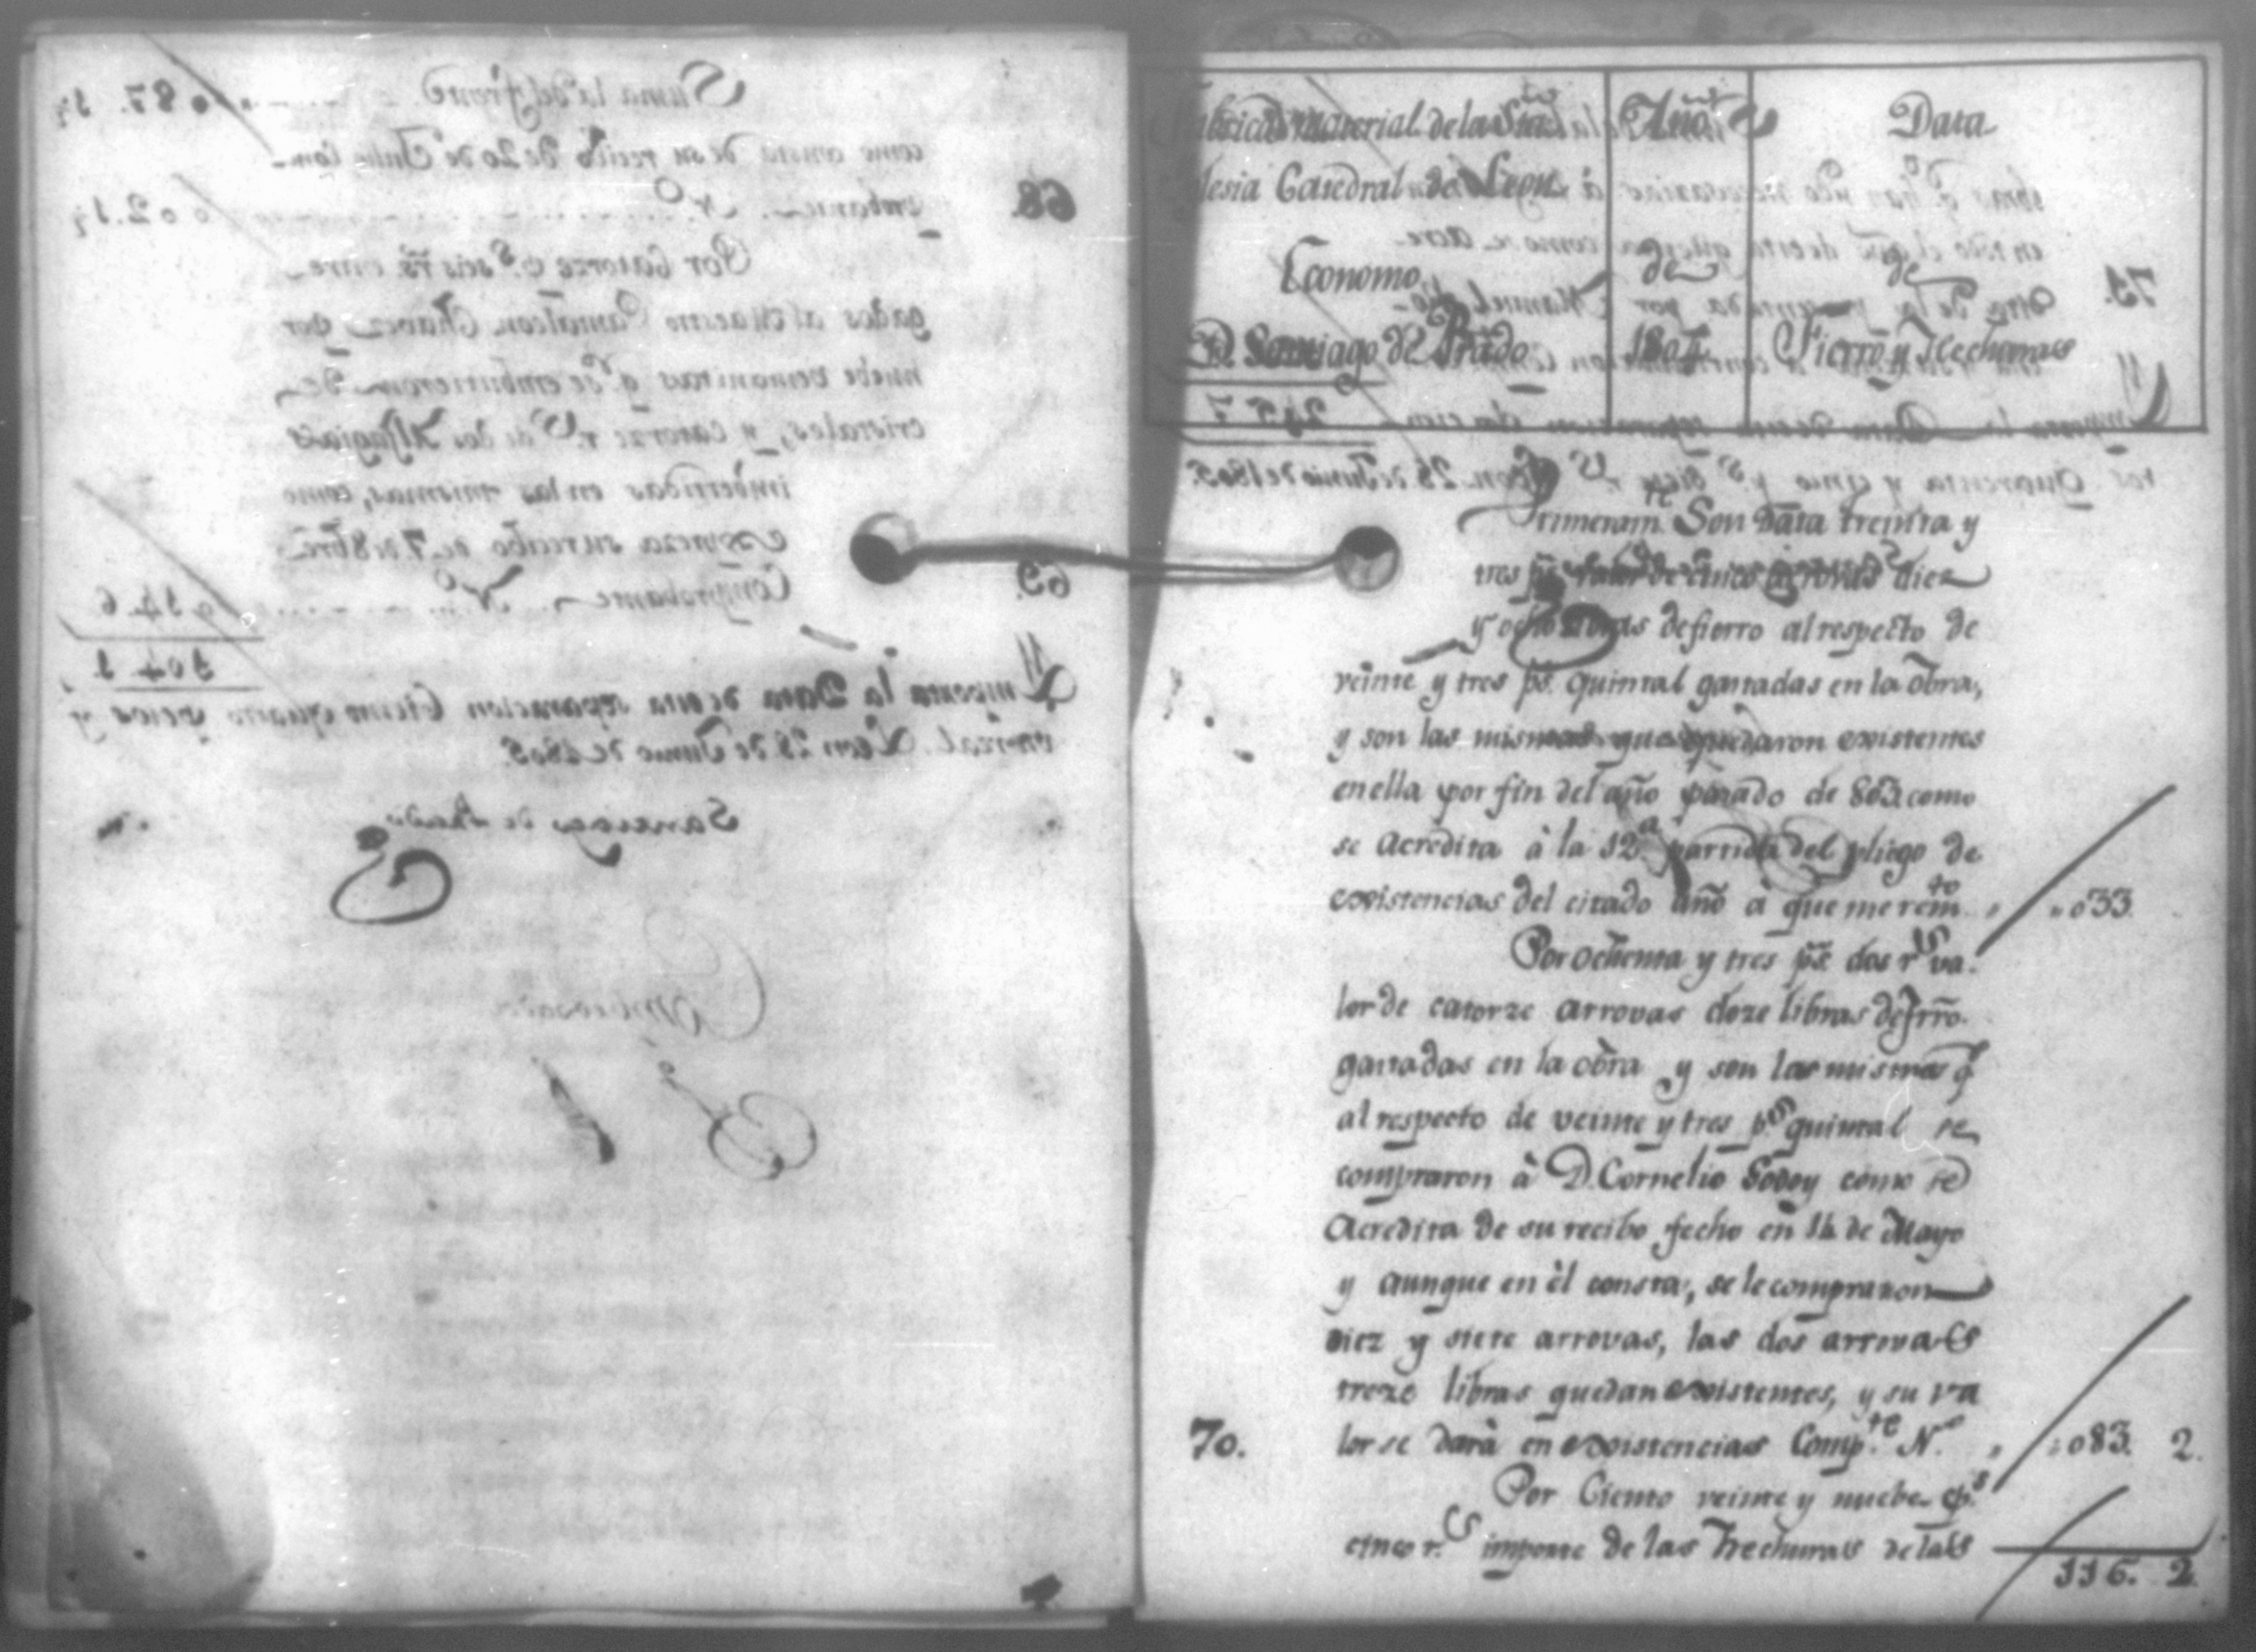 Suma la del frente 087. 1½
como consta de su recibo de 20 de Julio Com-
68. probante N.º 002.1½
Por Catorze p.s seis rr.s entre-
gados al Maestro Pantaleon Chavez por
nuebe q.e se embutieron de
cristales, y catorze r.s de dos Alfagias
imbertidas en las mismas, como
expresa su recibo de 7 de 8bre
69. Comprobante N.º 014.6
104.1
Importa la Data de esta separacion Ciento quatro pesos y
un real. Leon 28 de Junio de 1805.
Santiago de Prado
Fabrica material de la Sta
Iglesia Catedral de Leon
Economo
D. Santiago de Prado
Año
de
1804
Data
de
Fierro y Hechuras
Primeram.te Son data treinta y
tres p.s valor de cinco arrovas diez
y ocho libras de fierro al respecto de
veinte y tres p.s quintal gastadas en la obra,
y son las mismas que quedaron existentes
en ella por fin del año pasado de 803. como
se acredita à la 12.a partida del pliego de
existencias del citado año à que me rem.to 033.
Por ochenta y tres p.s dos r.s va-
lor de catorze arrovas doze libras de frr̃o.
gastadas en la obra y son las mismas q.e
al respecto de veinte y tres p.s quintal se
compraron à D. Cornelio Godoy como se
Acredita de su recibo fecho en 14 de Mayo
y aunque en èl consta, se le compraron
diez y siete arrovas, las dos arrovas
treze libras quedan existentes, y su va
70. lor se darà en existencias Comp.te N.º 083. 2.
Por Ciento veinte y nuebe p.s
cinco r.s importe de las hechuras de las
116. 2.